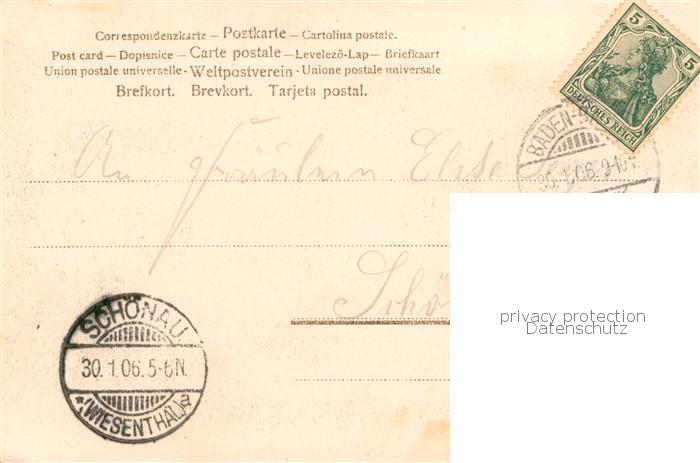 Correspondenzkarte – Postkarte – Cartolina postale.
Post card – Dopisnice – Carte postale – Levelezö-Lap – Briefkaart
Union postale universelle - Weltpostverein - Unione postale universale
Brefkort. Brevkort. Tarjeta postal.
5 5
DEUTSCHES REICH
BADEN-
30.1.06.9-10
An Fräulein Elise
Schö
privacy protection
Datenschutz
SCHÖNAU
30.1.06.5-6N.
* (WIESENTHAL) a